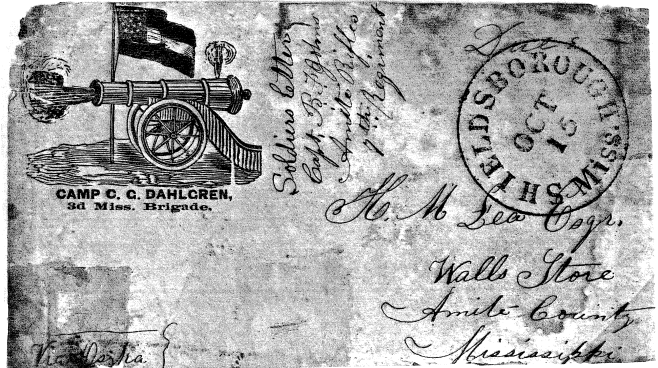 CAMP C. G. DAHLGREN,
3d Miss. Brigade.
Soldiers Letter
Capt. B. F. Johns
Amite Rifles
7th Regiment
Due 5
SHIELDSBOROUGH MISS.
OCT
16
H. M. Lea Esqr.
Walls Store
Amite County
Mississippi
Via Osyka